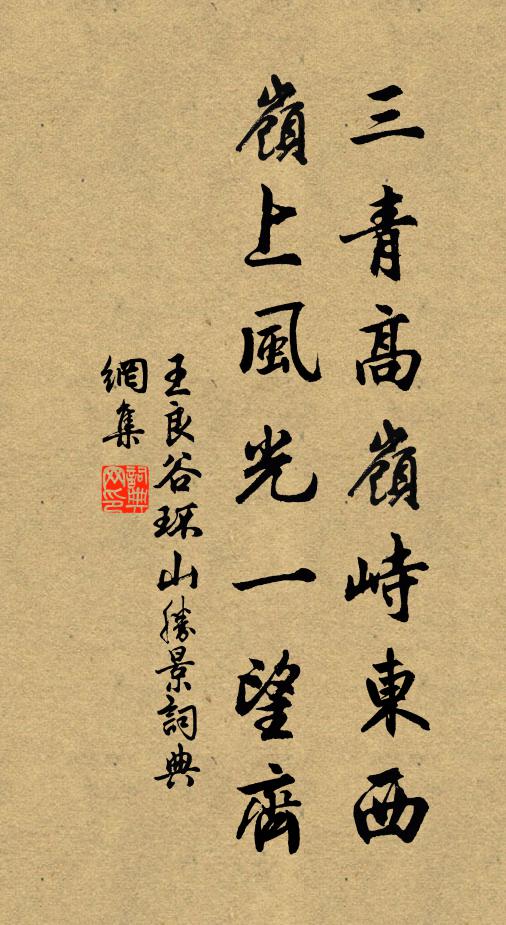 三青高嶺峙東西
嶺上風光一望齊
王良谷環山勝景詞典
網集
詞典
網印